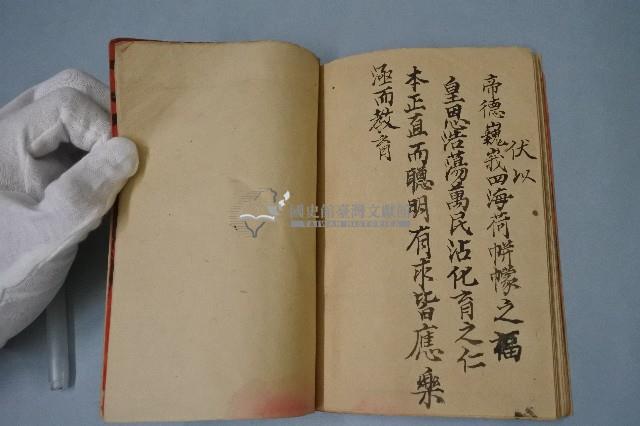 伏以
帝德巍峩四海荷帡幪之福
皇恩浩蕩萬民沾化育之仁
本正直而聰明有求皆應樂
涵而教育
國史館臺灣文獻館
TAIWAN HISTORICA